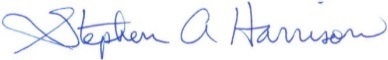 Stephen A Harrison